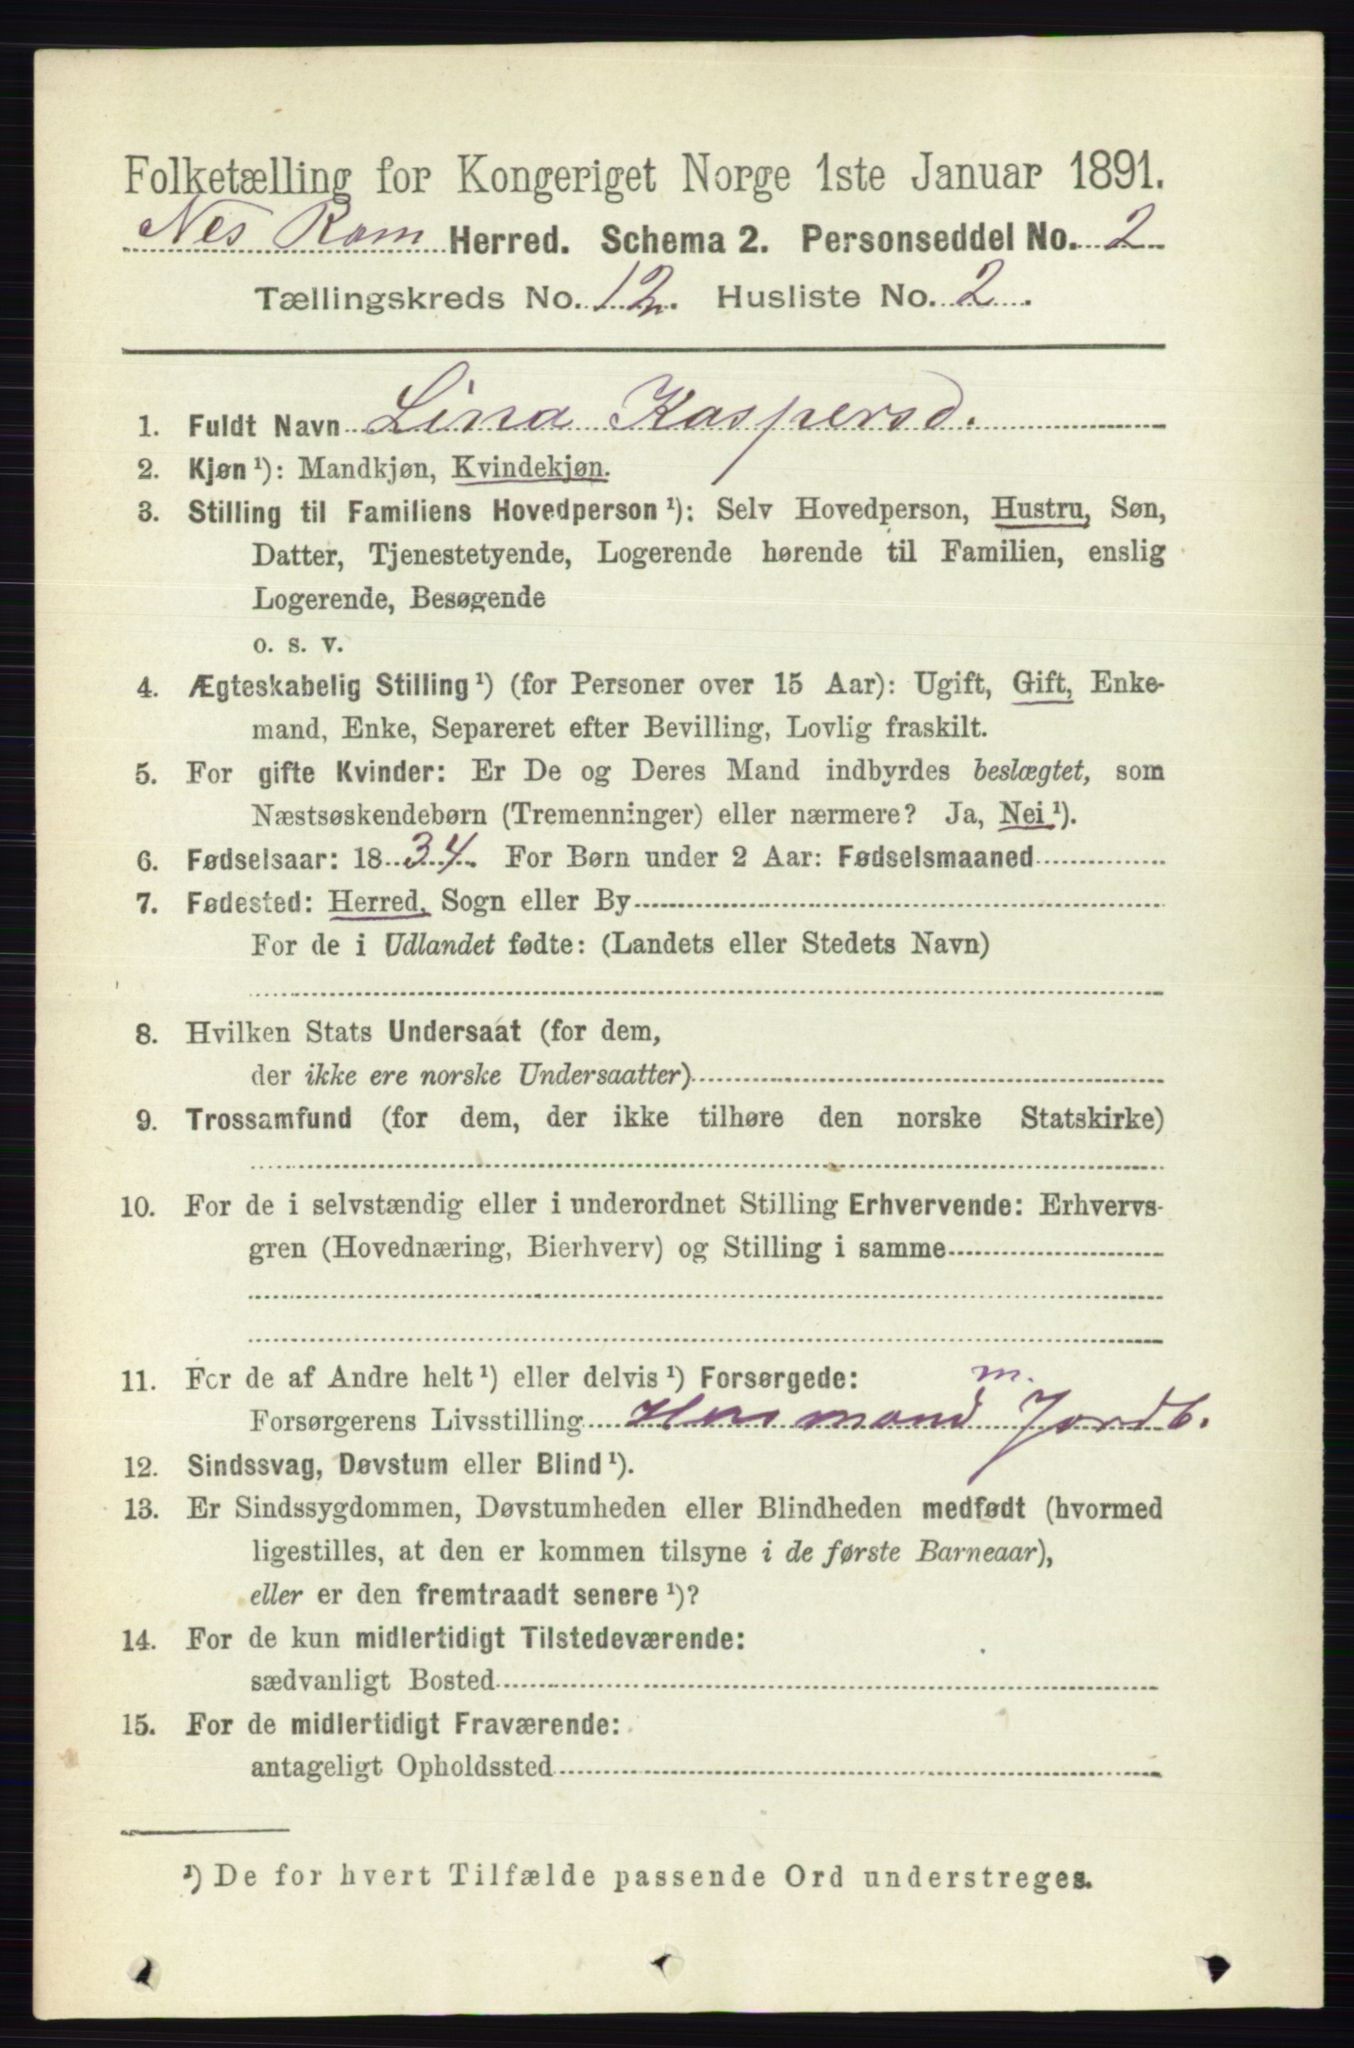 Folketælling for Kongeriget Norge 1ste Januar 1891.
Nes Rom Herred. Schema 2. Personseddel No. 2
Tællingskreds No. 12. Husliste No. 2.
1. Fuldt Navn Lina Kaspersd.
2. Kjøn ¹): Mandkjøn, Kvindekjøn.
3. Stilling til Familiens Hovedperson ¹): Selv Hovedperson, Hustru, Søn,
Datter, Tjenestetyende, Logerende hørende til Familien, enslig
Logerende, Besøgende
o. s. v.
4. Ægteskabelig Stilling ¹) (for Personer over 15 Aar): Ugift, Gift, Enke-
mand, Enke, Separeret efter Bevilling, Lovlig fraskilt.
5. For gifte Kvinder: Er De og Deres Mand indbyrdes beslægtet, som
Næstsøskendebørn (Tremenninger) eller nærmere? Ja, Nei ¹).
6. Fødselsaar: 1834. For Børn under 2 Aar: Fødselsmaaned
7. Fødested: Herred, Sogn eller By
For de i Udlandet fødte: (Landets eller Stedets Navn)
8. Hvilken Stats Undersaat (for dem,
der ikke ere norske Undersaatter)
9. Trossamfund (for dem, der ikke tilhøre den norske Statskirke)
10. For de i selvstændig eller i underordnet Stilling Erhvervende: Erhvervs-
gren (Hovednæring, Bierhverv) og Stilling i samme
11. For de af Andre helt ¹) eller delvis ¹) Forsørgede:
Forsørgerens Livsstilling Husmand m. Jordb.
12. Sindssvag, Døvstum eller Blind ¹).
13. Er Sindssygdommen, Døvstumheden eller Blindheden medfødt (hvormed
ligestilles, at den er kommen tilsyne i de første Barneaar),
eller er den fremtraadt senere ¹)?
14. For de kun midlertidigt Tilstedeværende:
sædvanligt Bosted
15. For de midlertidigt Fraværende:
antageligt Opholdssted
¹) De for hvert Tilfælde passende Ord understreges.